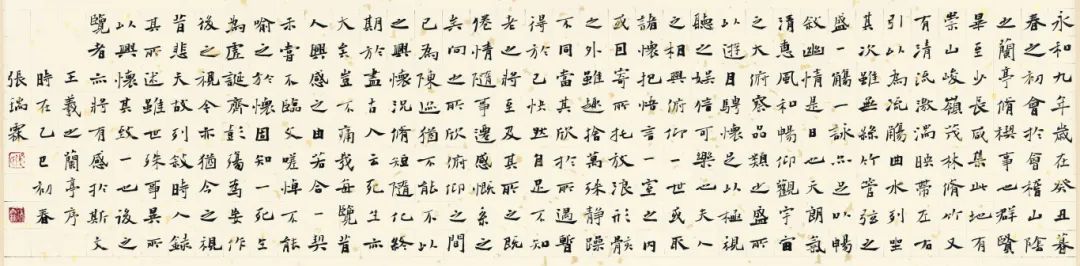 永和九年歲在癸丑暮
春之初會於會稽山陰
之蘭亭脩禊事也群賢
畢至少長咸集此地有
崇山峻嶺茂林脩竹又
有清流激湍映帶左右
引以為流觴曲水列坐
其次雖無絲竹管弦之
盛一觴一詠亦足以暢
敘幽情是日也天朗氣
清惠風和暢仰觀宇宙
之大俯察品類之盛所
以遊目騁懷足以極視
聽之娛信可樂也夫人
之相與俯仰一世或取
諸懷抱悟言一室之內
或因寄所托放浪形骸
之外雖趣捨萬殊静躁
不同當其欣於所遇暫
得於己快然自足不知
老之將至及其所之既
倦情隨事遷感慨系之
矣向之所欣俯仰之間
已為陳迹猶不能不以
之興懷況脩短隨化終
期於盡古人云死生亦
大矣豈不痛哉每覽昔
人興感之由若合一契
未嘗不臨文嗟悼不能
喻之於懷固知一死生
為虛誕齊彭殤為妄作
後之視今亦猶今之視
昔悲夫故列敘時人錄
其所述雖世殊事異所
以興懷其致一也後之
覽者亦將有感於斯文
王羲之蘭亭序
時在乙巳初春
張瑞霖